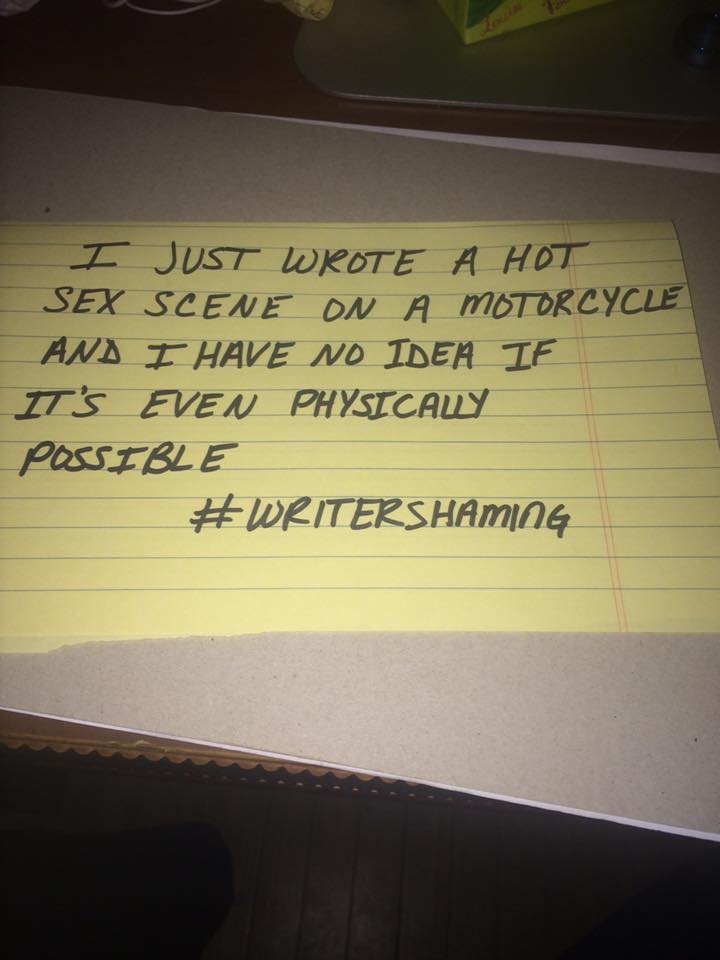 I JUST WROTE A HOT
SEX SCENE ON A MOTORCYCLE
AND I HAVE NO IDEA IF
IT'S EVEN PHYSICALLY
POSSIBLE
#WRITERSHAMING